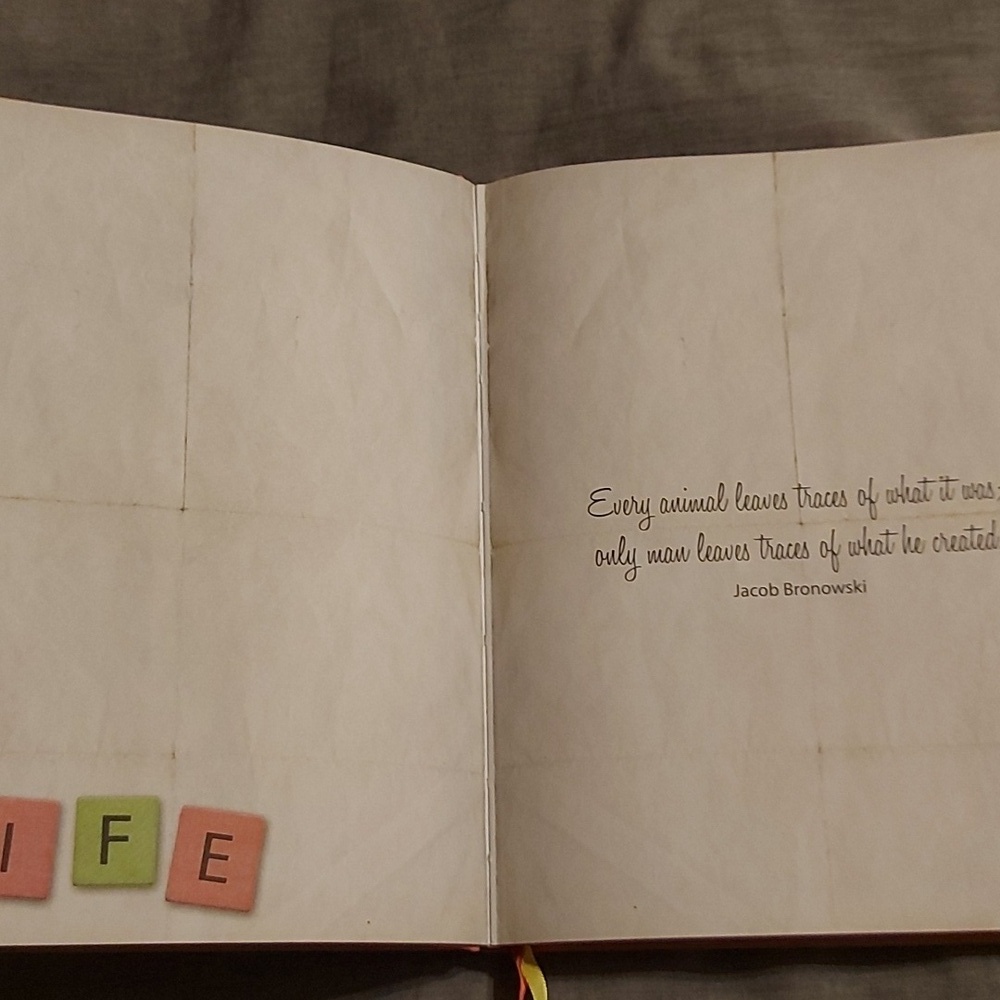 I F E
Every animal leaves traces of what it was;
only man leaves traces of what he created
Jacob Bronowski